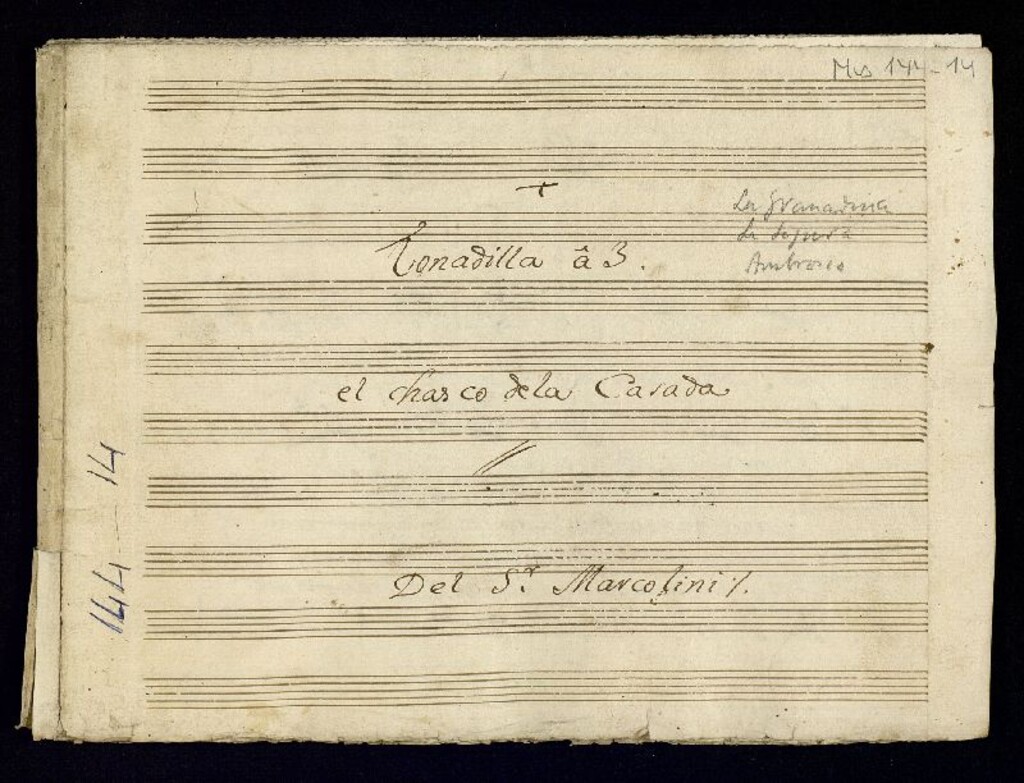 Mus 144-14
+
La Granadina
La Segura
Ambrosio
Tonadilla â 3.
el chasco dela Casada
Del S.r Marcolini
144-14